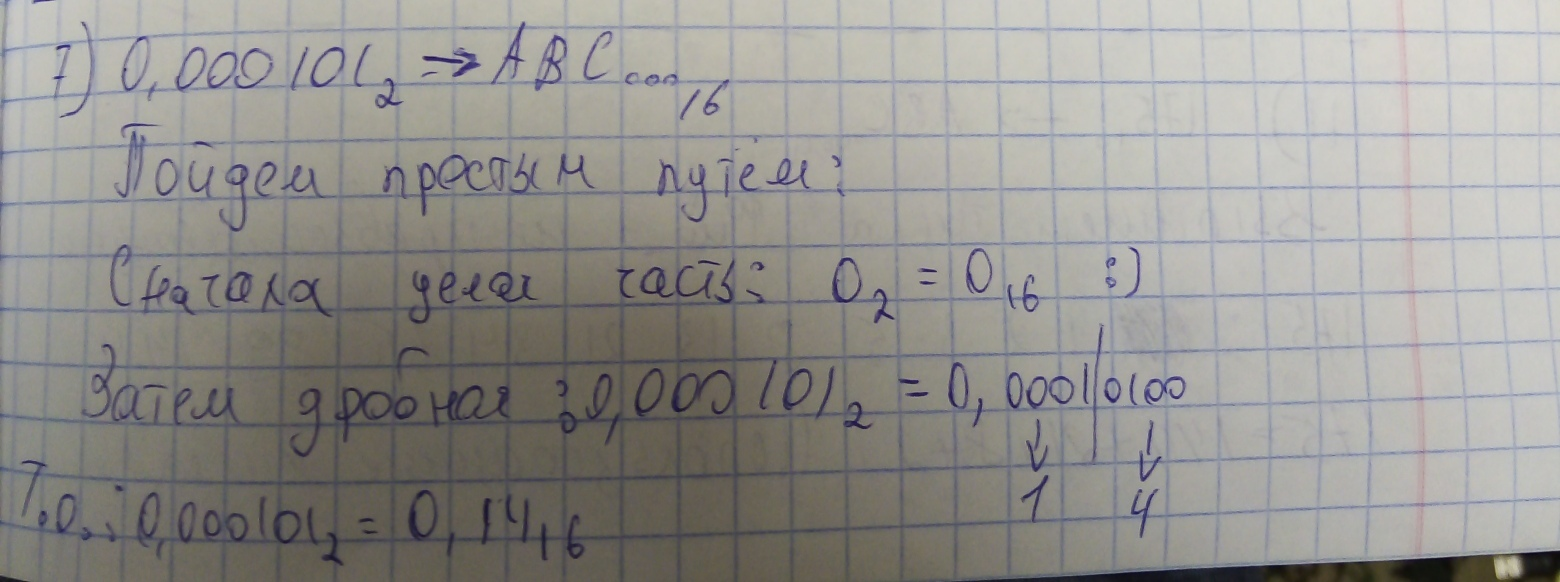 7) 0,000101₂ → ABC...₁₆
Пойдем простым путём:
Сначала целая часть: 0₂ = 0₁₆ :)
Затем дробная : 0,000101₂ = 0, 0001|0100
↓ ↓
1 4
Т.о.: 0,000101₂ = 0,14₁₆